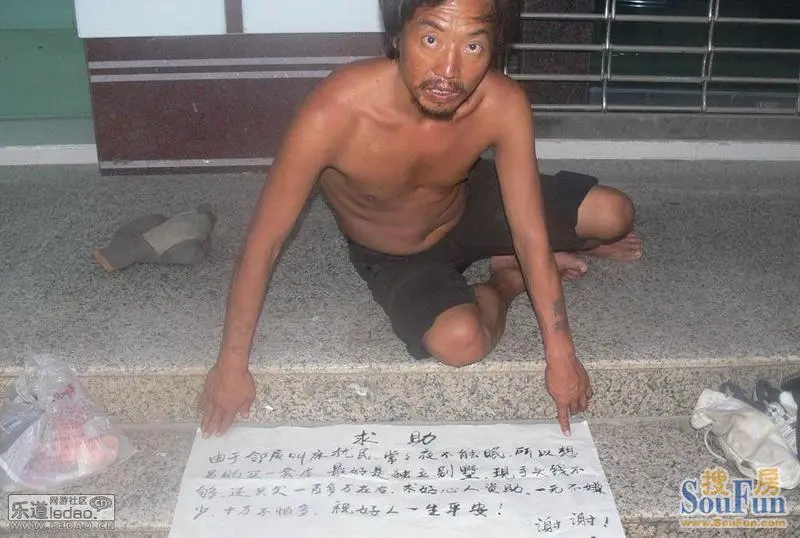 求 助
由于邻居叫床扰民，常々夜不能眠，所以想
另购买一套房，最好是独立别墅，现手头钱不
够，还只欠一百多万左右，求好心人资助，一元不嫌
少，十万不怕多，祝好人一生平安！
谢谢！
乐道 网游社区 ledao. CN
WWW.LEDAO.CN
搜房
SouFun